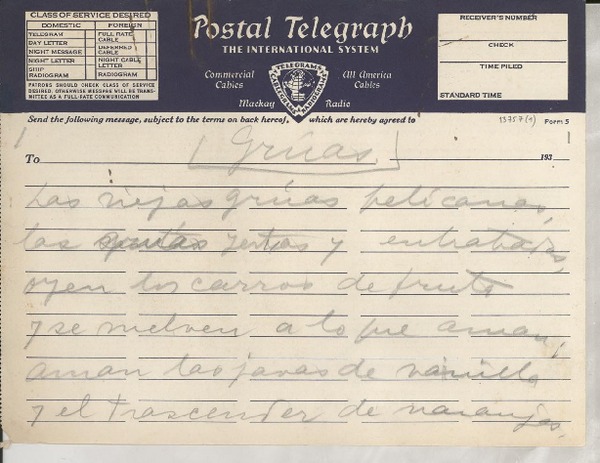 CLASS OF SERVICE DESIRED
DOMESTIC FOREIGN
TELEGRAM FULL RATE CABLE
DAY LETTER DEFERRED CABLE
NIGHT MESSAGE NIGHT CABLE LETTER
NIGHT LETTER
SHIP RADIOGRAM RADIOGRAM
PATRONS SHOULD CHECK CLASS OF SERVICE
DESIRED, OTHERWISE MESSAGE WILL BE TRANS-
MITTED AS A FULL-RATE COMMUNICATION
Postal Telegraph
THE INTERNATIONAL SYSTEM
Commercial Cables
All America Cables
TELEGRAMS
Mackay Radio
RECEIVER'S NUMBER
CHECK
TIME FILED
STANDARD TIME
Send the following message, subject to the terms on back hereof, which are hereby agreed to
13757(1) Form 5
To [Grúas] 193
Las viejas grúas pelícanas,
las yertas y
oyen los carros de fruta
y se vuelven a lo que aman;
aman las javas de vainilla
y el trascender de naranjas.